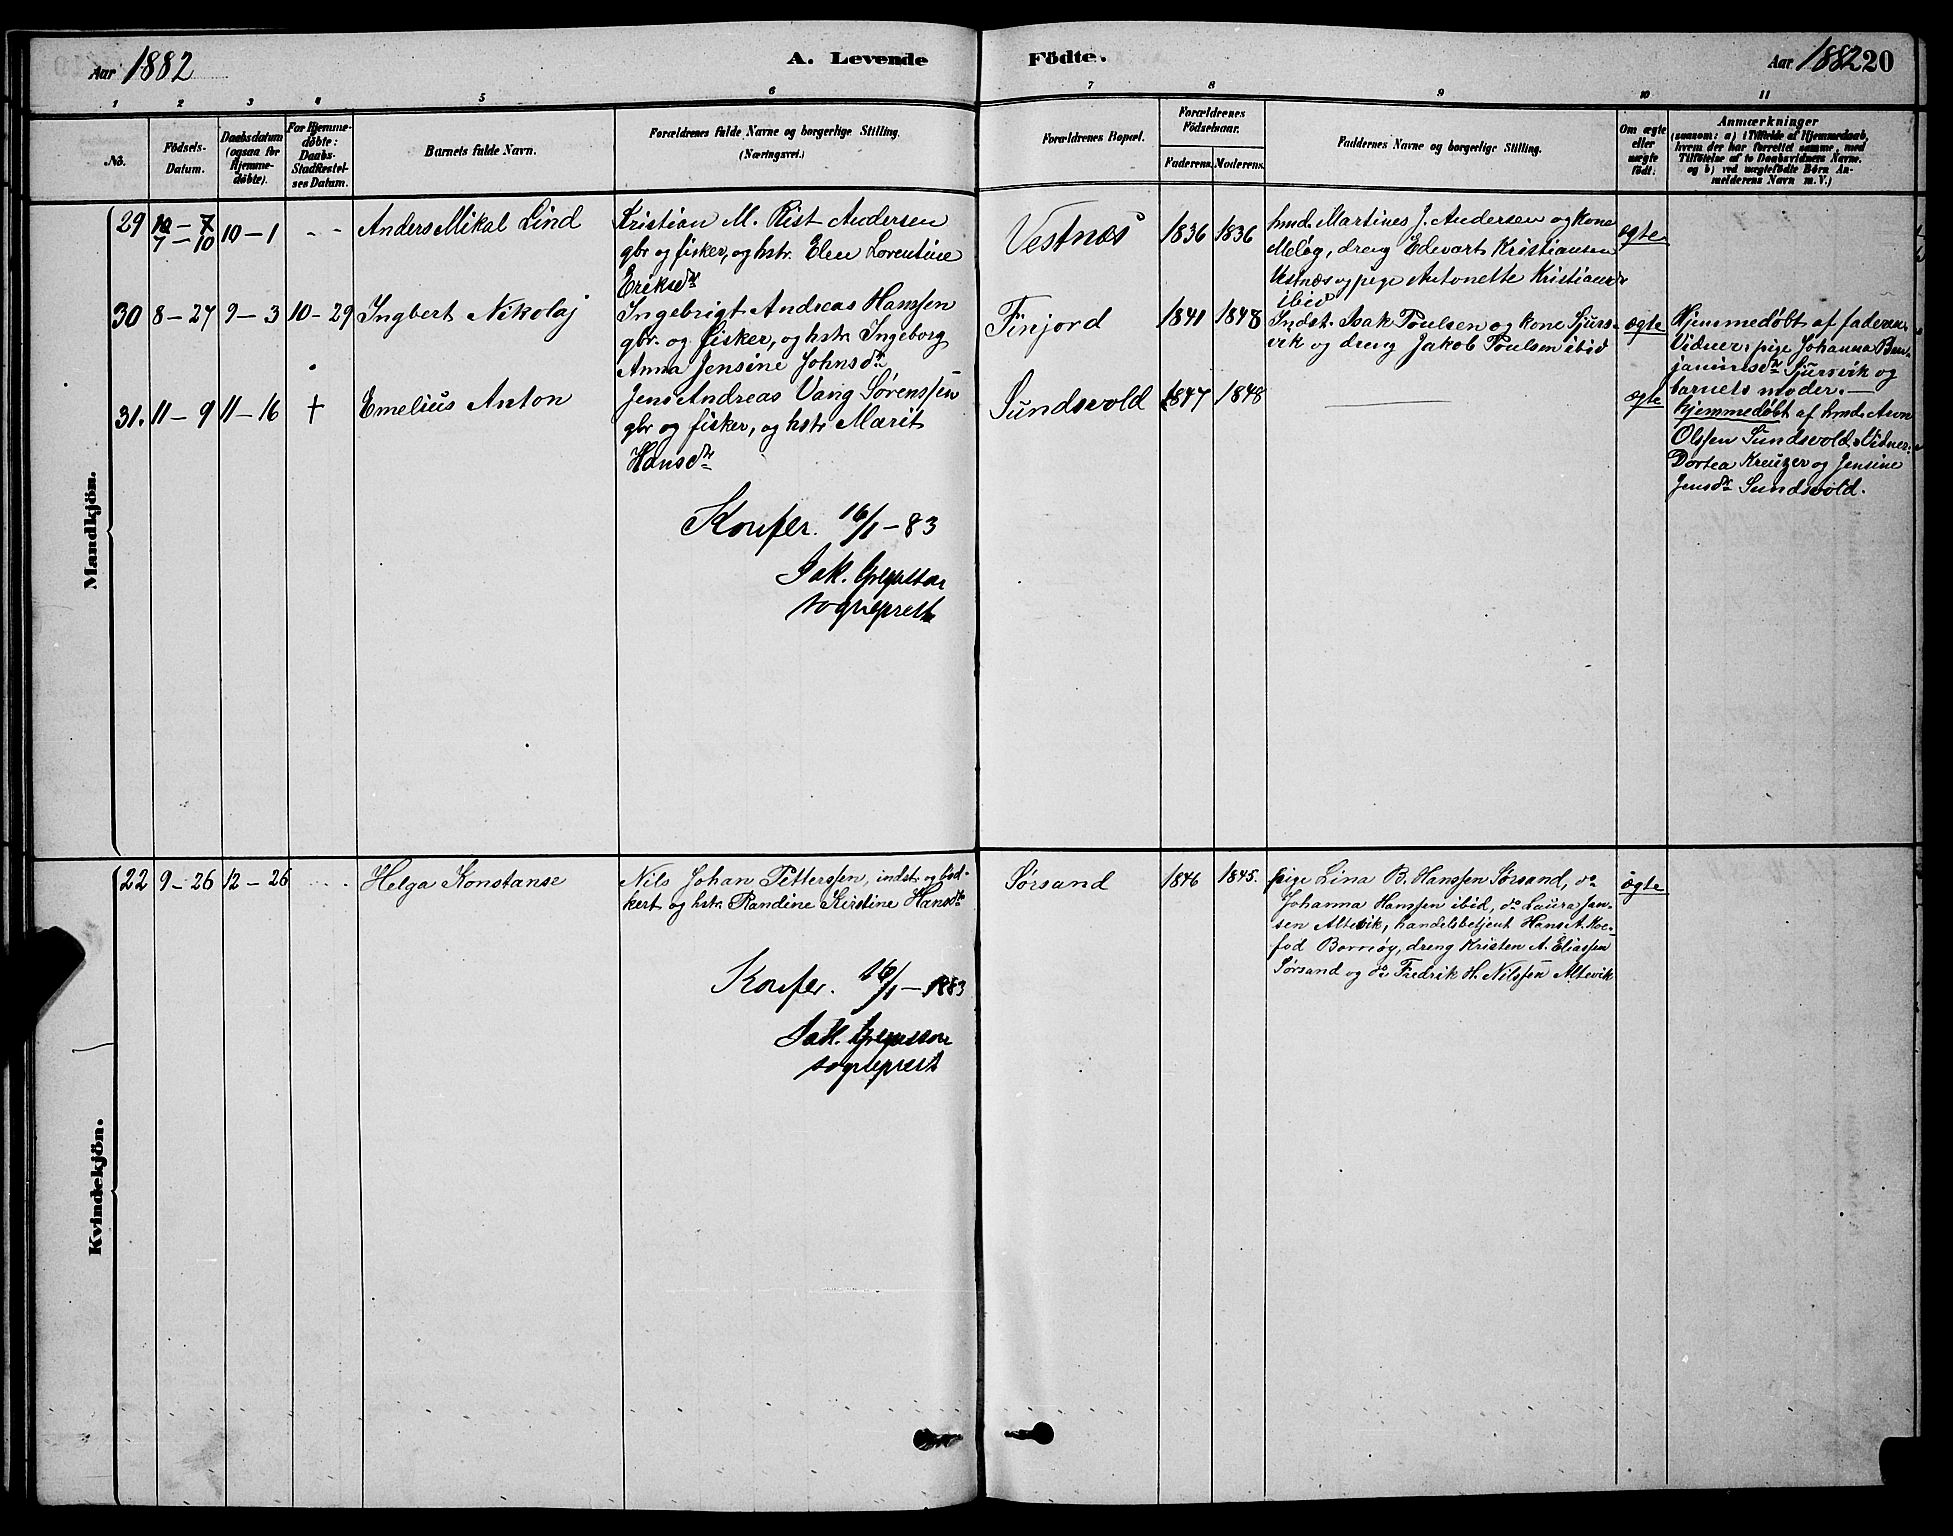 Aar 1882
A. Levende
Födte.
Aar 1882 20
1 2 3 4 5 6 7 8 9 10 11
No.
Födsels-
Datum.
Daabsdatum
(ogsaa for
Hjemme-
döbte).
For Hjemme-
döbte:
Daabs-
Stadfæstel-
ses Datum.
Barnets fulde Navn.
Forældrenes fulde Navne og borgerlige Stilling.
(Næringsvei.)
Forældrenes Bopæl.
Forældrenes
Födselsaar.
Faderens. Moderens.
Faddernes Navne og borgerlige Stilling.
Om ægte
eller
uægte
födt.
Anmærkninger
(saasom: a) i Tilfælde af Hjemmedaab,
hvem der har forrettet samme, med
Tilföielse af to Daabsvidners Navne.
og b) ved uægtefödte Börn An-
melderens Navn m. V.)
Mandkjön.
29
7 – 10
10 – 1
- -
Anders Mikal Lind
Kristian M. Rist Andersen
gbr og fisker, og hstr. Elen Lorentine
Eriksdtr
Vestnæs
1836 1836
hmd. Martines J. Andersen og kone
Meløg, dreng Edevart Kristiansen
Vestnæs og pige Antonette Kristiansdr
ibid
ægte
30
8 – 27
9 – 3
10 – 29
Ingbert Nikolaj
Ingebrigt Andreas Hanssen
gbr. og fisker, og hstr. Ingeborg
Anna Jensine Johnsdtr
Finjord
1841 1848
Indst. Isak Poulsen og kone Sjurs-
vik og dreng Jakob Poulsen ibid
ægte
Hjemmedøbt af faderen.
Vidner: pige Johanna Ben-
jaminsdtr Sjursvik og
barnets moder.
31.
11 – 9
11 – 16
†
Emelius Anton
Jens Andreas Vang Sørenssen
gbr og fisker, og hstr Marit
Hansdtr
Sundsvold
1847 1848
ægte
Hjemmedøbt af hmd. Arn
Olssen Sundsvold. Vidner:
Dortea Kreuzer og Jensine
Jensdtr Sundsvold.
Konfer. 16/1 – 83
Jak.
sogneprest
Kvindekjön.
22
9 – 26
12 – 26
Helga Konstanse
Nils Johan Petterssen, indst. og
og hstr. Randine Kirstine Hansdtr
Sørsand
1846 1845.
pige Lina B. Hanssen Sørsand, do
Johanna Hanssen ibid, do Laura Jan-
sen Altevik, handelsbetjent Hans A. Koe-
fod Bornøy, dreng Kristen A. Eliassen
Sørsand og do Fredrik H. Nilssen Altevik
ægte
Konfer. 16/1 – 1883
Jak.
sogneprest